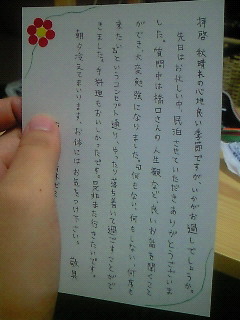 拝啓 秋晴れの心地良い季節ですが、いかがお過しでしょうか。
先日はお忙しい中、民泊させていただき、ありがとうございま
した。質問中は橋口さんの人生観など、良いお話を聞くこと
ができ、大変勉強になりました。「何もない、何もしない、何度も
来たい」というコンセプト通り、ゆったり落ち着いて過ごすことがで
きました。お料理もおいしかったです。是非また行きたいです。
朝夕冷えてまいります。お体にはお気をつけ下さい。 敬具